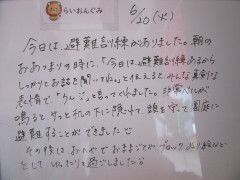 らいおんぐみ
6/20(火)
今日は避難訓練がありました。朝の
おあつまりの時に、「今日は避難訓練あるから
しっかりとお話を聞いてね」と伝えると みんな真剣な
表情で、「うんっ」と言ってくれました。非常ベルが
鳴ると サッと机の下に隠れて、頭を守って園庭に
避難することができました
その後は、おへやで おままごとや ブロック、ぬり絵など
をして ゆったりと過ごしました